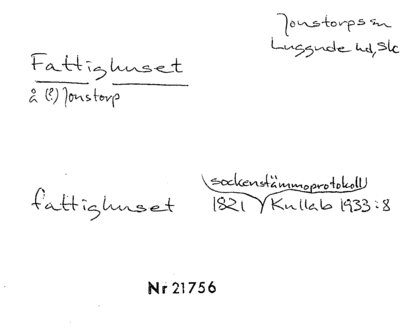 Jonstorps sn
Luggude hd, Sk
Fattighuset
å (?) Jonstorp
sockenstämmoprotokoll
fattighuset 1821 Kullab 1933:8
Nr 21756